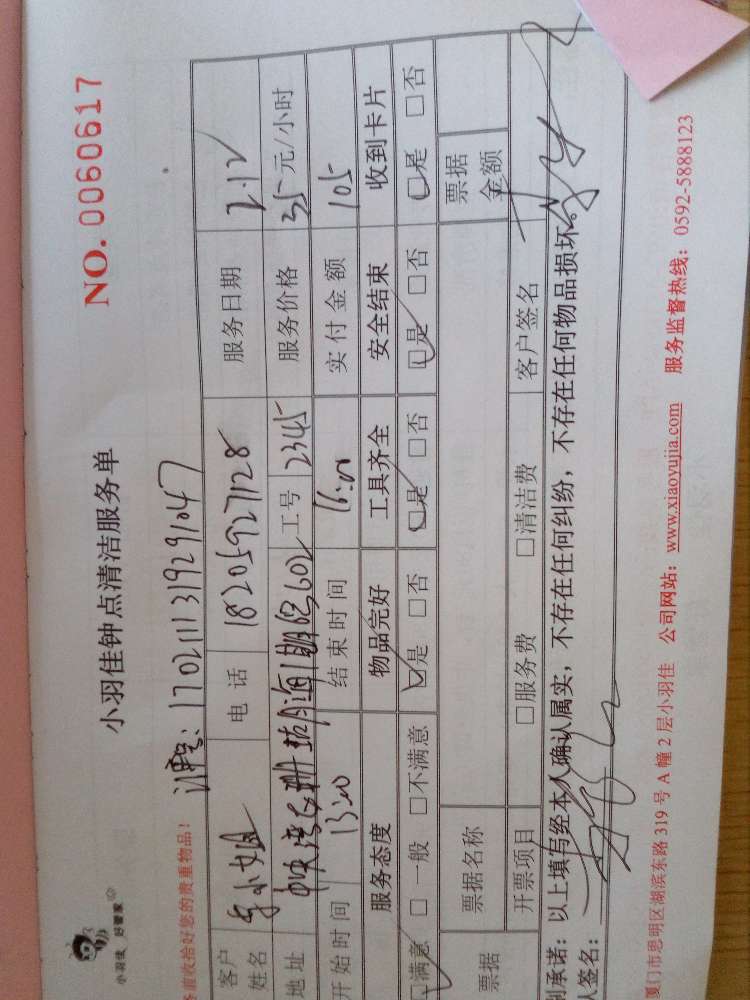 小羽佳 好管家
小羽佳钟点清洁服务单
NO. 0060617
收拾好您的贵重物品！
1702111319291047
客户姓名 小姐 电话 18205927128 服务日期 2.12
地址 602 工号 2345 服务价格 35元/小时
开始时间 13:00 结束时间 16:00 实付金额 105
服务态度 物品完好 工具齐全 安全结束 收到卡片
满意 □一般 □不满意 □是 □否 □是 □否 □是 □否 □是 □否
票据 票据名称 票据金额
开票项目 □服务费 □清洁费 客户签名
承诺：以上填写经本人确认属实，不存在任何纠纷，不存在任何物品损坏。
人签名：
厦门市思明区湖滨东路 319 号 A 幢 2 层小羽佳 公司网站：www.xiaoyujia.com 服务监督热线：0592-5888123